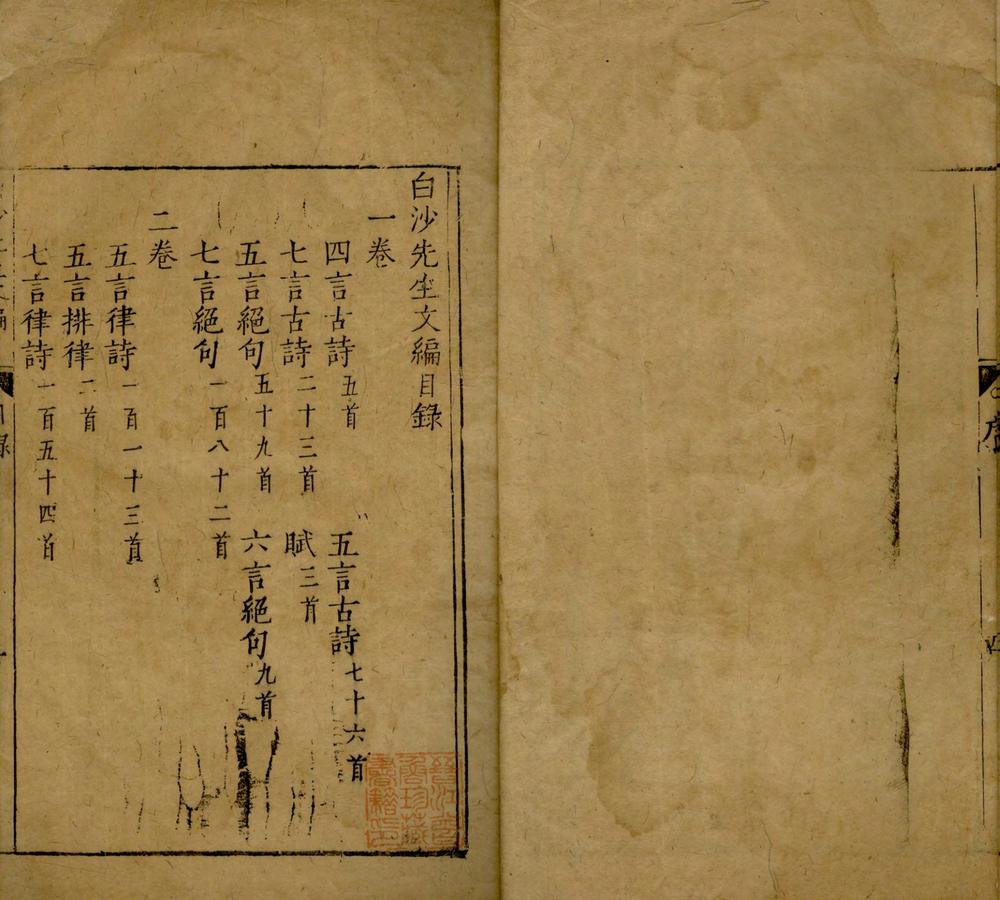 白沙先生文編目錄
一卷
四言古詩五首 五言古詩七十六首
七言古詩二十三首 賦三首
五言絕句五十九首 六言絕句九首
七言絕句一百八十二首
二卷
五言律詩一百一十三首
五言排律二首
七言律詩一百五十四首